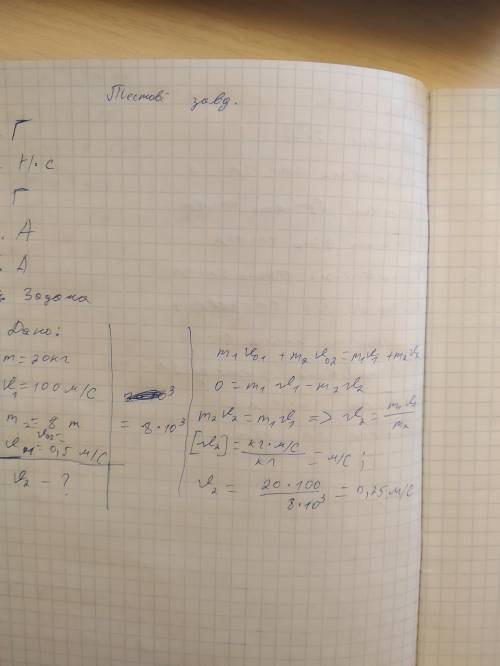 Тестові завд.
Г
Н·с
Г
А
А
Задача
Дано:
m = 20кг
v₁ = 100 м/с
m₂ = 8 т
= 8·10³
v₀₂ =
= 0,5 м/с
v₂ – ?
m₁v₀₁ + m₂v₀₂ = m₁v₁ + m₂v₂
0 = m₁v₁ – m₂v₂
m₂v₂ = m₁v₁ => v₂ = m₁v₁/m₂
[v₂] = кг·м/с / кг = м/с ;
v₂ = 20·100 / 8·10³ = 0,25 м/с